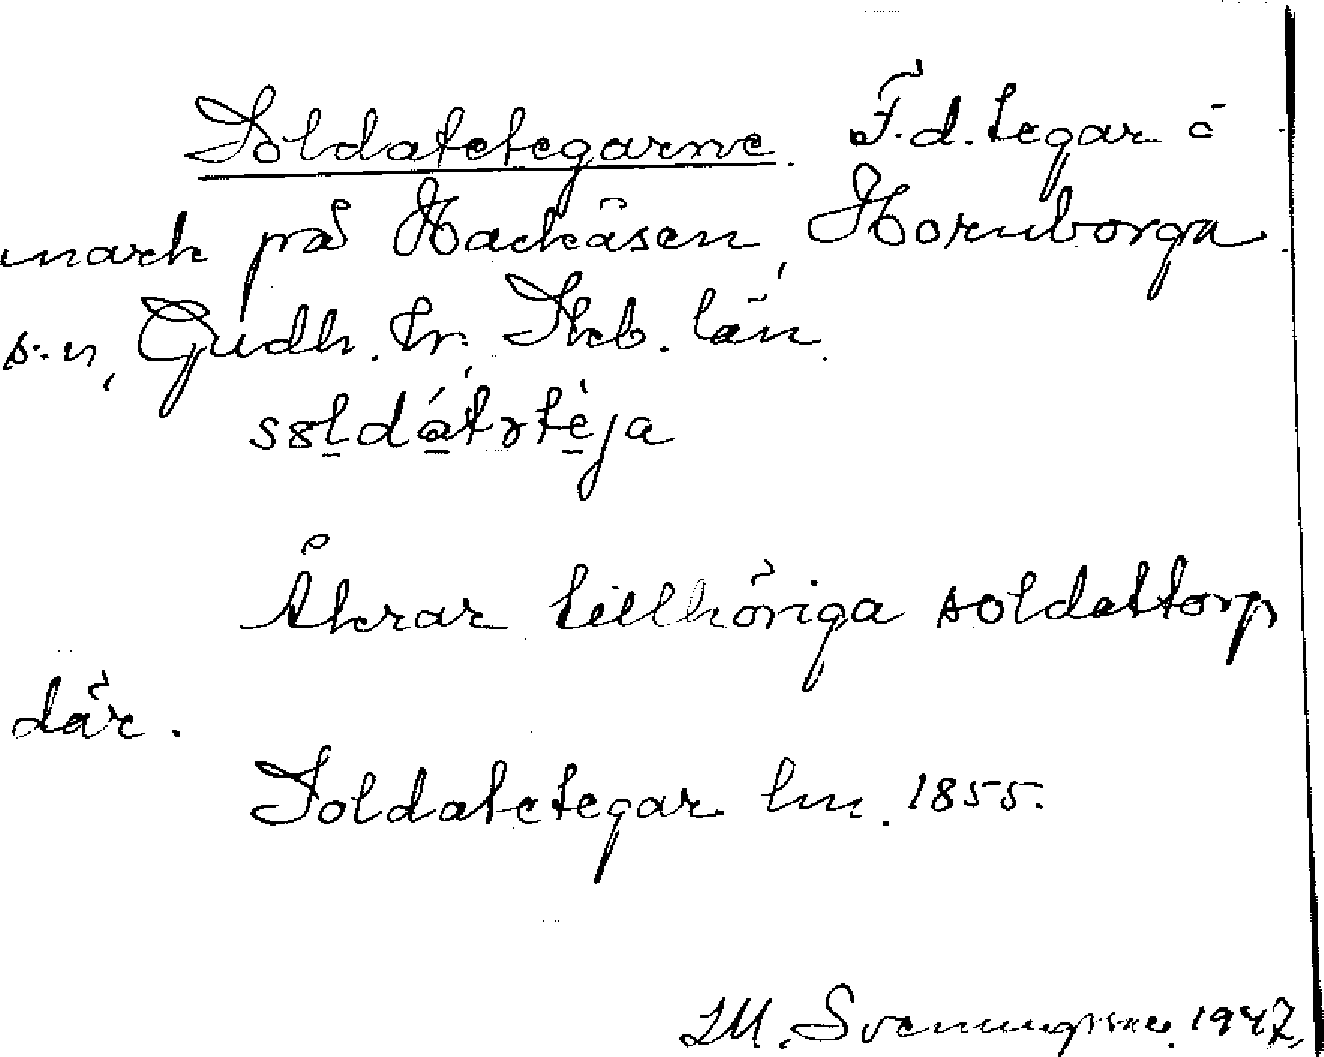 Soldatetegarne. F.d. tegar ō
mark på Hackåsen, Hornborga
s:n, Gudh. hr, Skb. län.
sɷldátrtèja
Åkrar tillhöriga soldattorp
där.
Soldatetegar lm. 1855.
1947